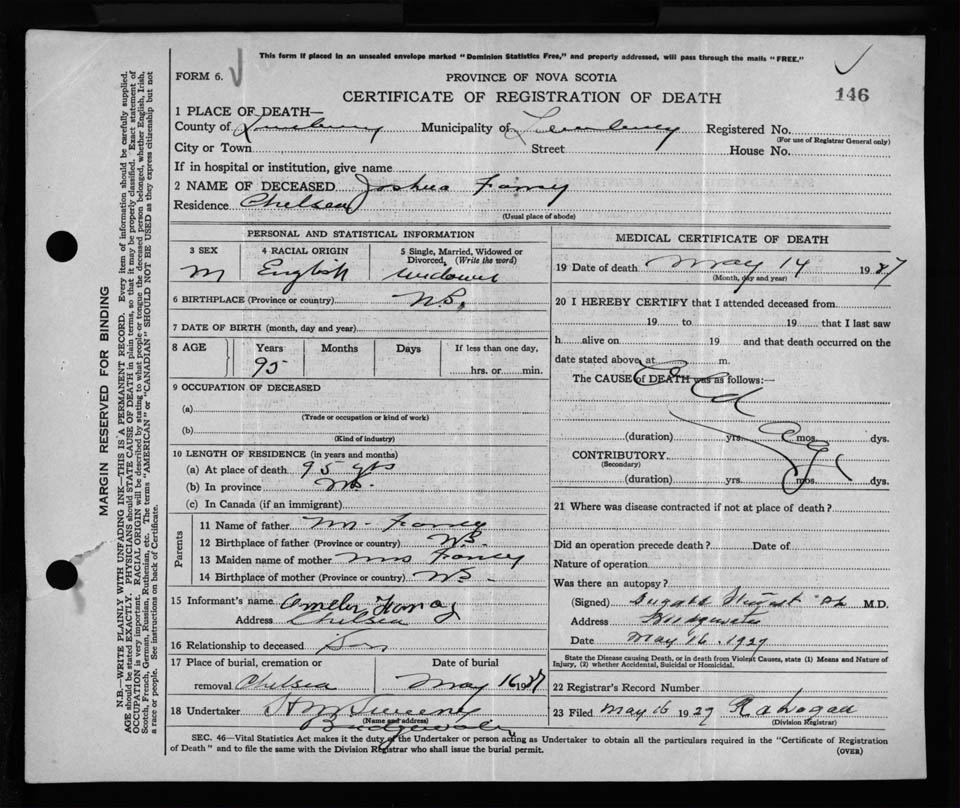 This form if placed in an unsealed envelope marked "Dominion Statistics Free," and properly addressed, will pass through the mails "FREE."
FORM 6.
PROVINCE OF NOVA SCOTIA
CERTIFICATE OF REGISTRATION OF DEATH
146
1 PLACE OF DEATH—
County of Lunenburg Municipality of Lunenburg Registered No.
(For use of Registrar General only)
City or Town Street House No.
If in hospital or institution, give name
2 NAME OF DECEASED Joshua
Residence Chelsea
(Usual place of abode)
PERSONAL AND STATISTICAL INFORMATION
3 SEX 4 RACIAL ORIGIN 5 Single, Married, Widowed or Divorced, (Write the word)
M English widower
6 BIRTHPLACE (Province or country) N.S.
7 DATE OF BIRTH (month, day and year)
8 AGE Years Months Days If less than one day,
95 hrs. or min.
9 OCCUPATION OF DECEASED
(a)
(Trade or occupation or kind of work)
(b)
(Kind of industry)
10 LENGTH OF RESIDENCE (in years and months)
(a) At place of death 95 yrs
(b) In province
(c) In Canada (if an immigrant)
Parents
11 Name of father
12 Birthplace of father (Province or country) NS
13 Maiden name of mother Mrs
14 Birthplace of mother (Province or country) NS
15 Informant's name
Address Chelsea
16 Relationship to deceased Son
17 Place of burial, cremation or removal Chelsea
Date of burial May 16 1927
18 Undertaker Sweeny
(Name and address)
Bridgewater
MEDICAL CERTIFICATE OF DEATH
19 Date of death May 14 1927
(Month, day and year)
20 I HEREBY CERTIFY that I attended deceased from
19 to 19 that I last saw
h alive on 19 and that death occurred on the
date stated above, at m.
The CAUSE of DEATH was as follows:—
Old
Age
(duration) yrs. mos. dys.
CONTRIBUTORY
(Secondary)
(duration) yrs. mos. dys.
21 Where was disease contracted if not at place of death?
Did an operation precede death? Date of
Nature of operation
Was there an autopsy?
(Signed) Dugald Stewart M.D.
Address Bridgewater
Date May 16 1927
State the Disease causing Death, or in death from Violent Causes, state (1) Means and Nature of
Injury, (2) whether Accidental, Suicidal or Homicidal.
22 Registrar's Record Number
23 Filed May 16 1927
(Division Registrar)
SEC. 46—Vital Statistics Act makes it the duty of the Undertaker or person acting as Undertaker to obtain all the particulars required in the "Certificate of Registration
of Death" and to file the same with the Division Registrar who shall issue the burial permit.
(OVER)
MARGIN RESERVED FOR BINDING
N.B.—WRITE PLAINLY WITH UNFADING INK—THIS IS A PERMANENT RECORD. Every item of information should be carefully supplied.
AGE should be stated EXACTLY. PHYSICIANS should STATE CAUSE OF DEATH in plain terms, so that it may be properly classified. Exact statement of
OCCUPATION is very important. RACIAL ORIGIN will be described by stating to what people or tongue the deceased person belonged, whether English, Irish,
Scotch, French, German, Russian, Ruthenian, etc. The terms "AMERICAN" or "CANADIAN" SHOULD NOT BE USED as they express citizenship but not
a race or people. See instructions on back of Certificate.